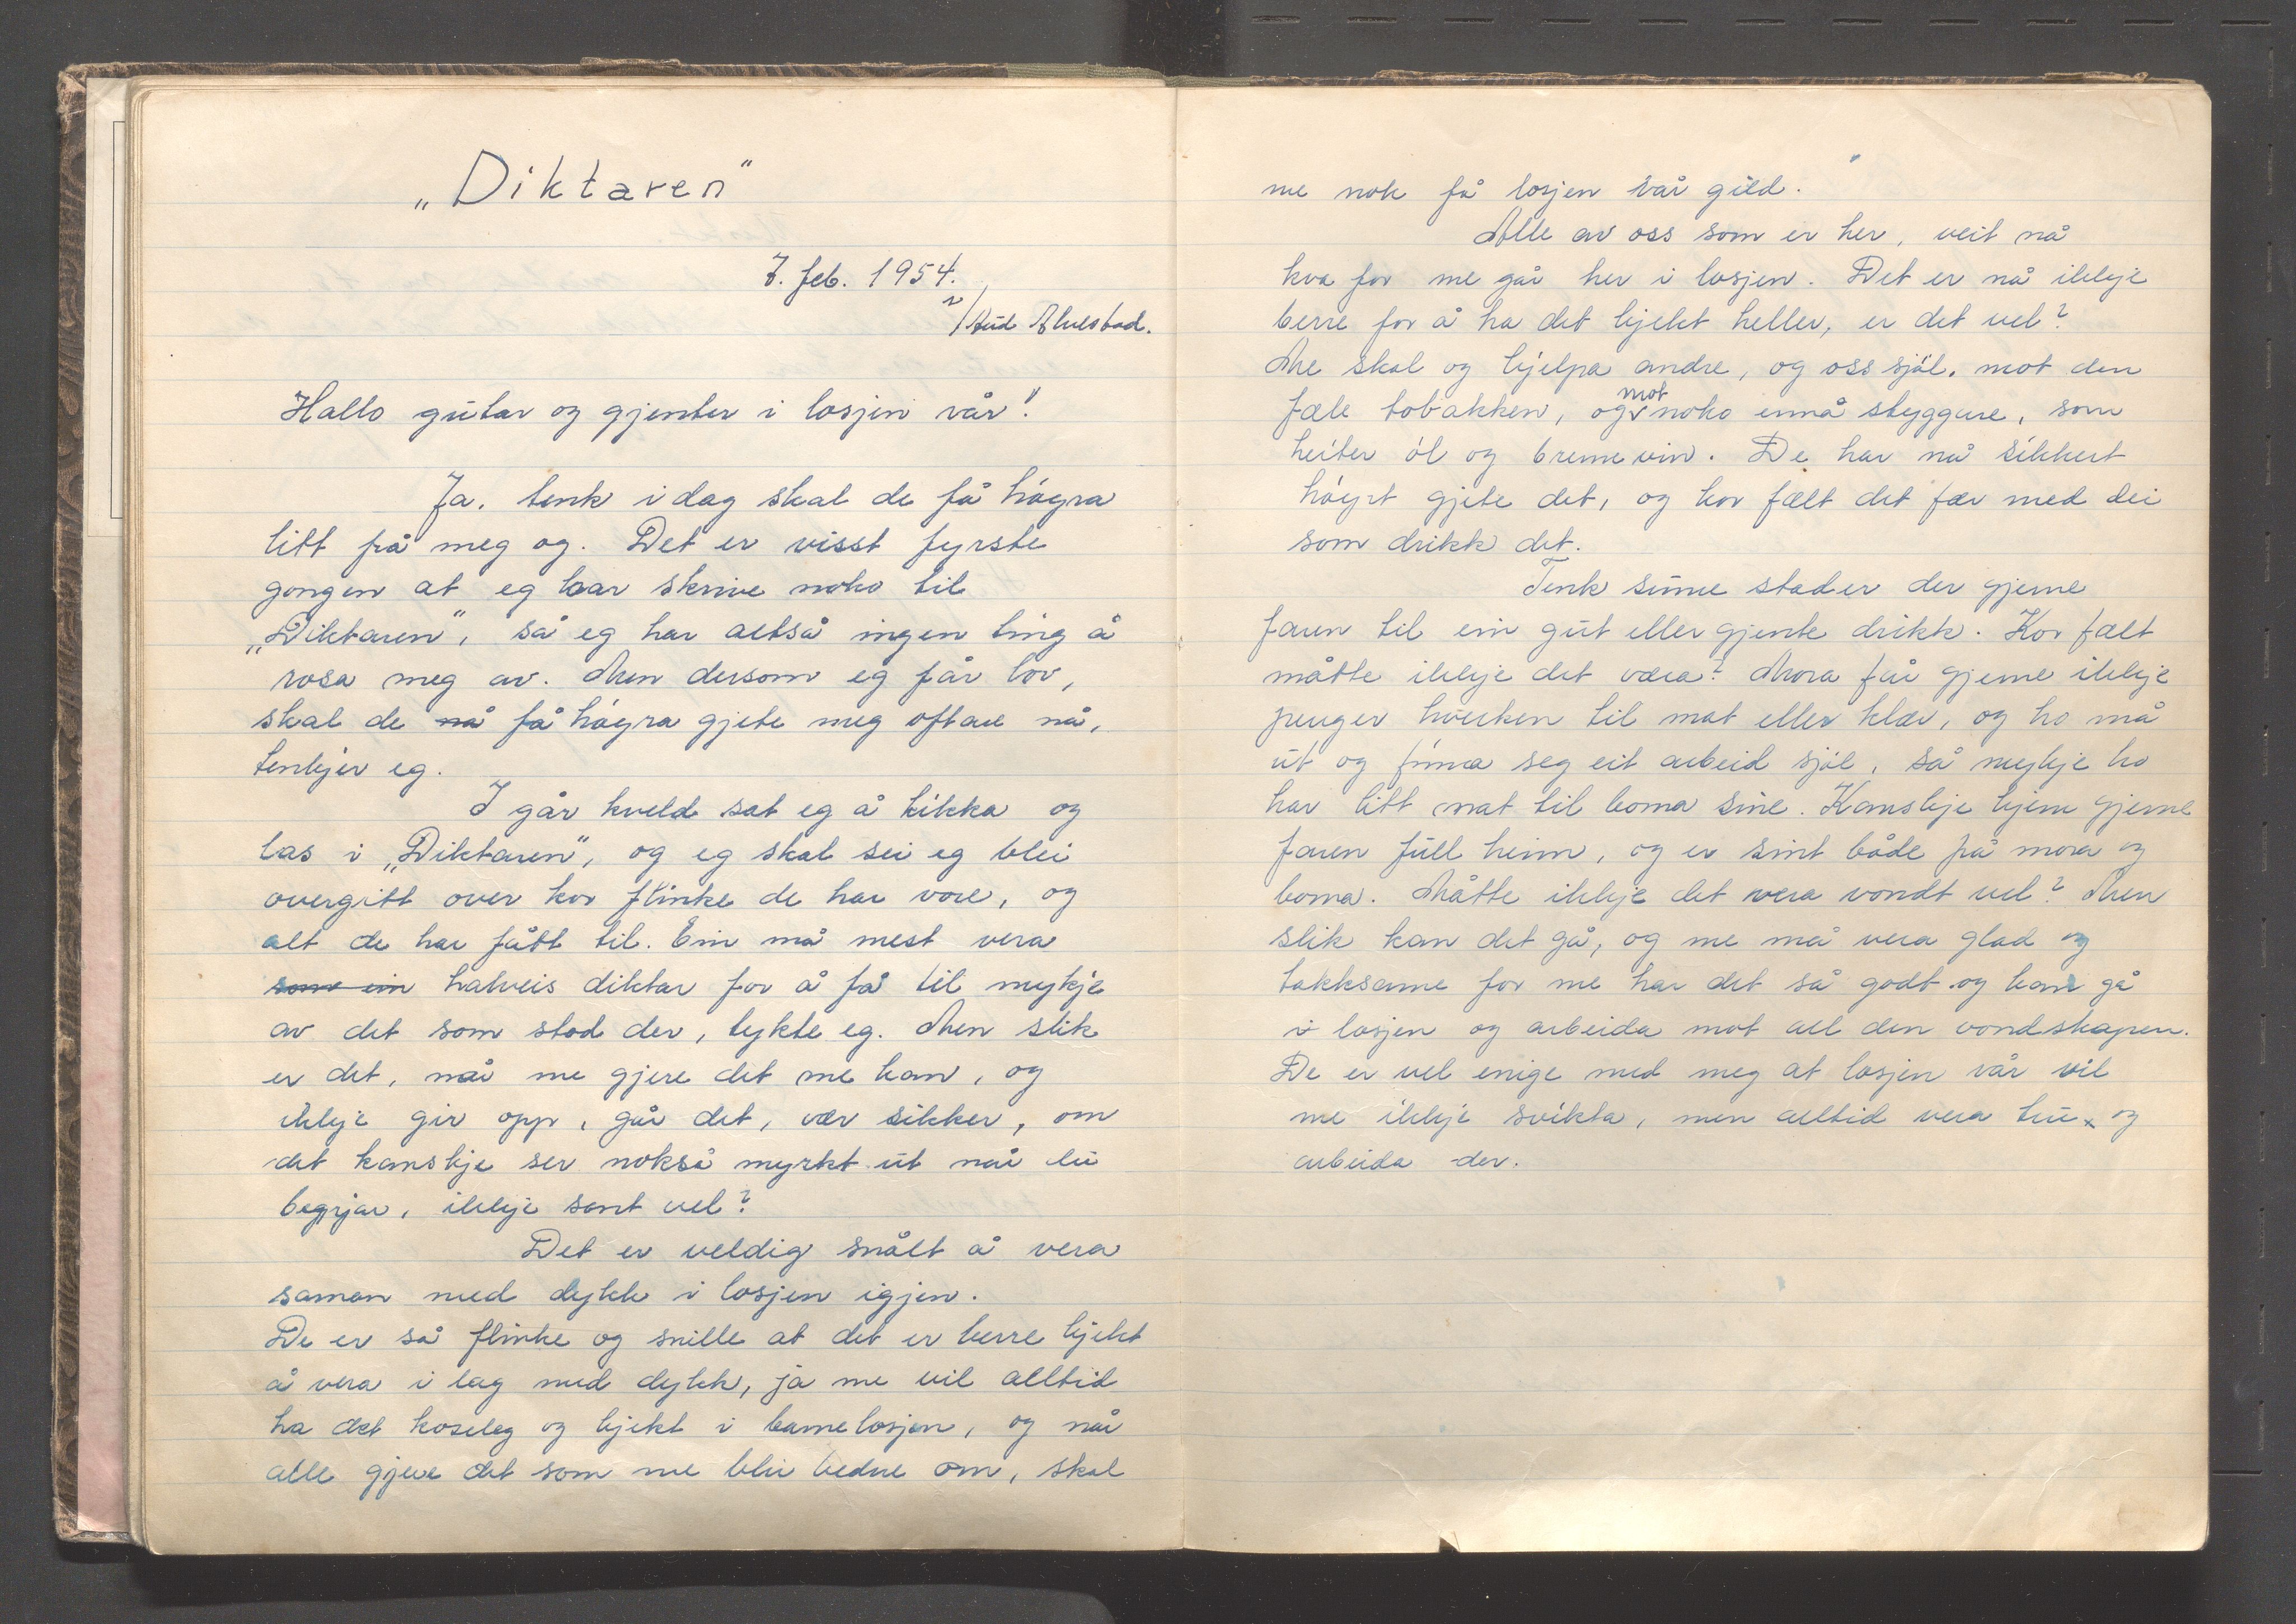 „Diktaren"
7. feb. 1954.
v/Aud Alvestad.
Hallo gutar og gjenter i losjen vår!
Ja, tenk i dag skal de få høyra
litt frå meg og. Det er visst fyrste
gongen at eg har skrive noko til
„Diktaren", så eg har altså ingen ting å
rosa meg av. Men dersom eg får lov,
skal de nå få høyra gjete meg oftare nå,
tenkjer eg.
I går kveld sat eg å kikka og
las i „Diktaren", og eg skal sei eg blei
overgitt over kor flinke de har vore, og
alt de har fått til. Ein må mest vera
som ein halveis diktar for å få til mykje
av det som stod der, tykte eg. Men slik
er det, når me gjere det me kan, og
ikkje gir opp, går det, vær sikker, om
det kanskje ser nokså myrkt ut når du
begyjar, ikkje sant vel?
Det er veldig snålt å vera
saman med dykk i losjen igjen.
De er så flinke og snille at det er berre kjekt
å vera i lag med dykk, ja me vil alltid
ha det koseleg og kjekt i barnelosjen, og når
alle gjere det som me bler bedne om, skal
me nok få losjen vår gild.
Alle av oss som er her, veit nå
kva for me går her i losjen. Det er nå ikkje
berre for å ha det kjekt heller, er det vel?
Me skal og hjelpa andre, og oss sjøl, mot den
fæle tobakken, og mot noko ennå styggare, som
heiter øl og brennevin. De har nå sikkert
høyrt gjete det, og kor fælt det fær med dei
som drikk det.
Tenk sume stader der gjerne
faren til ein gut eller gjente drikk. Kor fælt
måtte ikkje det væra? Mora får gjerne ikkje
penger hverken til mat eller klær, og ho må
ut og finna seg eit arbeid sjøl, så mykje ho
har litt mat til borna sine. Kanskje kjem gjerne
faren full heim, og er sint både på mora og
borna. Måtte ikkje det vera vondt vel? Men
slik kan det gå, og me må vera glad og
takksame for me har det så godt og kan gå
i losjen og arbeida mot all den vondskapen.
De er vel enige med meg at losjen vår vil
me ikkje svikta, men alltid vera tru og
arbeida der.